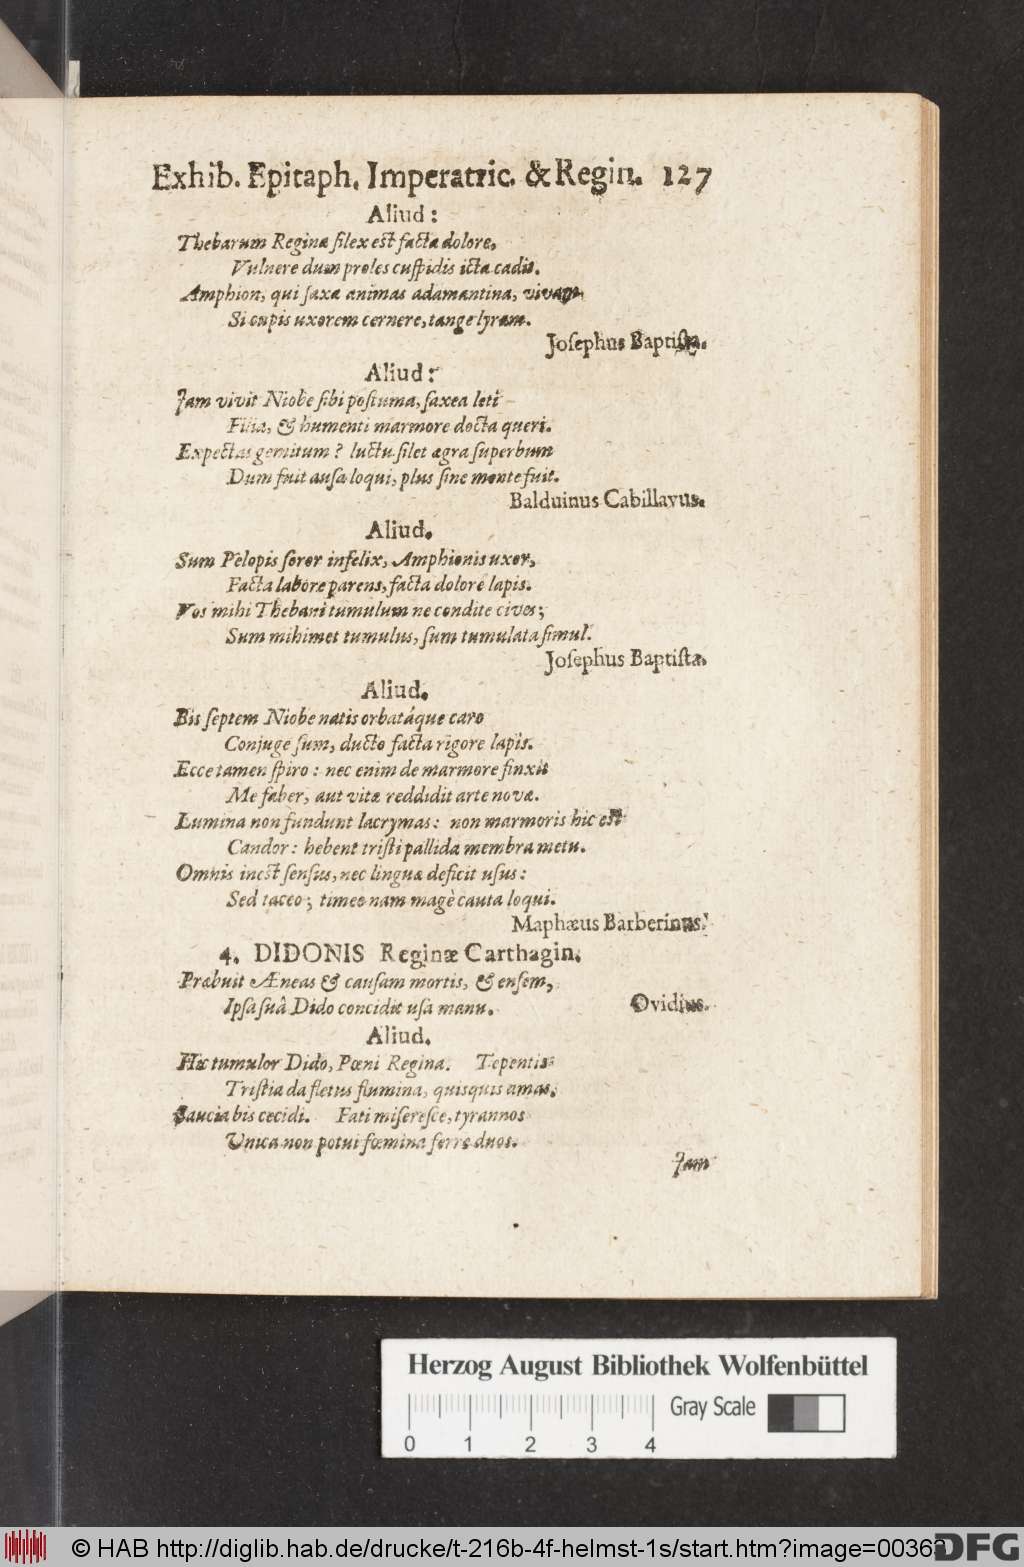 Exhib. Epitaph. Imperatric. & Regin. 127
Aliud:
Thebarum Reginæ silex est facta dolore,
Vulnere dum proles cuspidis icta cadit.
Amphion, qui saxa animas adamantina, vivam
Si cupis uxorem cernere, tange lyram.
Josephus Baptista.
Aliud:
Jam vivit Niobe sibi postuma, saxea leti
Filia, & humenti marmore docta queri.
Expectas gemitum? luctu silet ægra superbum
Dum fuit ausa loqui, plus sine monte fuit.
Balduinus Cabillavus.
Aliud.
Sum Pelopis soror infelix, Amphionis uxor,
Facta labore parens, facta dolore lapis.
Vos mihi Thebani tumulum ne condite cives;
Sum mihimet tumulus, sum tumulata simul.
Josephus Baptista.
Aliud.
Bis septem Niobe natis orbatáque caro
Conjuge sum, ducto facta rigore lapis.
Ecce tamen spiro: nec enim de marmore finxit
Me faber, aut vitæ reddidit arte novæ.
Lumina non fundunt lacrymas: non marmoris hic est
Candor: hebent tristi pallida membra metu.
Omnis inest sensus, nec linguæ deficit usus:
Sed taceo; timeo nam magè cauta loqui.
Maphæus Barberinus.
4. DIDONIS Reginæ Carthagin.
Præbuit Æneas & causam mortis, & ensem,
Ipsa suâ Dido concidit usa manu.
Ovidius.
Aliud.
Hic tumulor Dido, Pœni Regina. Tepentis
Tristia da fletus flumina, quisquis amas.
Saucia bis cecidi. Fati miseresce, tyrannos
Unica non potui fœmina ferre duos.
Jam
Herzog August Bibliothek Wolfenbüttel
Gray Scale
0 1 2 3 4
© HAB http://diglib.hab.de/drucke/t-216b-4f-helmst-1s/start.htm?image=00363
DFG